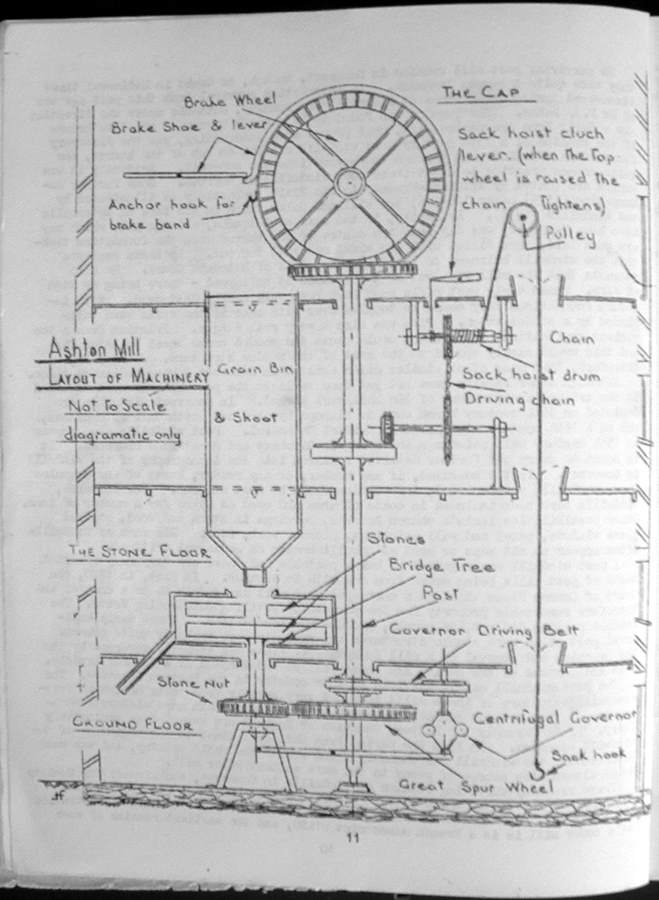 THE CAP
Brake Wheel
Brake Shoe & lever
Anchor hook for
brake band
Sack hoist cluch
lever. (when the top
wheel is raised the
chain tightens)
Pulley
Ashton Mill
LAYOUT OF MACHINERY
NOT TO SCALE
diagramatic only
Grain Bin
& Shoot
Chain
Sack hoist drum
Driving chain
THE STONE FLOOR
Stones
Bridge Tree
Post
Governor Driving Belt
Stone Nut
GROUND FLOOR
Centrifugal Governor
Sack hook
Great Spur Wheel
11